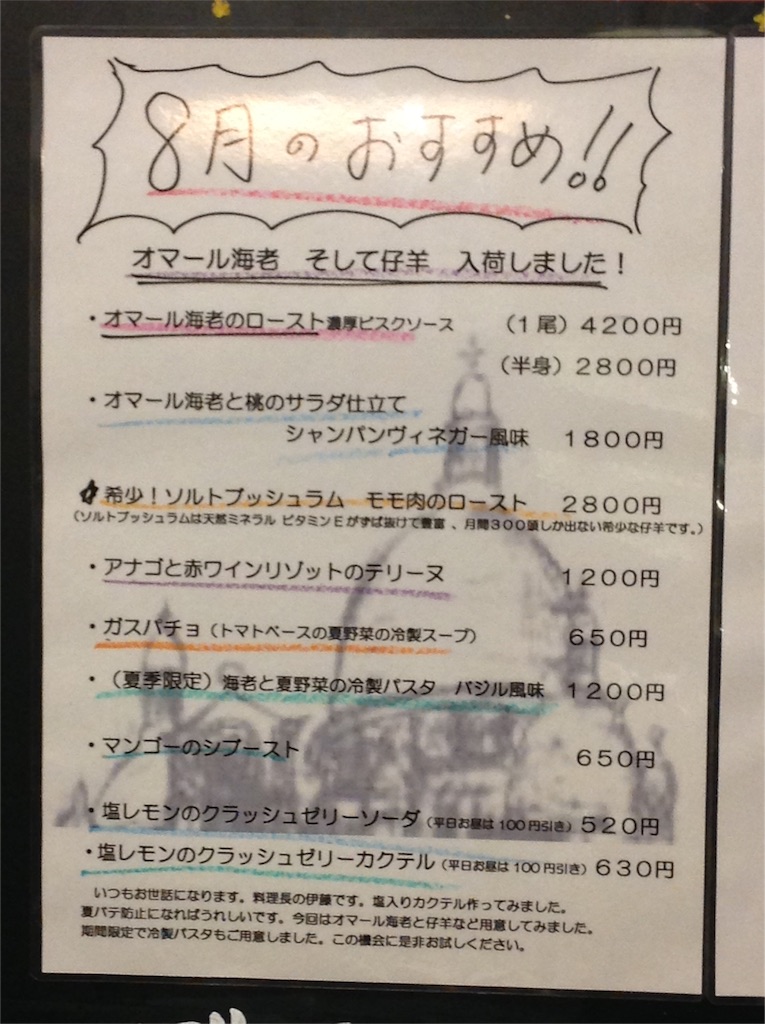 8月のおすすめ!!
オマール海老　そして仔羊　入荷しました！
・オマール海老のロースト濃厚ビスクソース　（１尾）４２００円
（半身）２８００円
・オマール海老と桃のサラダ仕立て
シャンパンヴィネガー風味　１８００円
希少！ソルトブッシュラム　モモ肉のロースト　２８００円
（ソルトブッシュラムは天然ミネラル ビタミンEがずば抜けて豊富 、月間３００頭しか出ない希少な仔羊です。）
・アナゴと赤ワインリゾットのテリーヌ　１２００円
・ガスパチョ（トマトベースの夏野菜の冷製スープ）　６５０円
・（夏季限定）海老と夏野菜の冷製パスタ　バジル風味　１２００円
・マンゴーのシブースト　６５０円
・塩レモンのクラッシュゼリーソーダ（平日お昼は 100 円引き）５２０円
・塩レモンのクラッシュゼリーカクテル（平日お昼は 100 円引き）６３０円
いつもお世話になります。料理長の伊藤です。塩入りカクテル作ってみました。
夏バテ防止になればうれしいです。今回はオマール海老と仔羊など用意してみました。
期間限定で冷製パスタもご用意しました。この機会に是非お試しください。